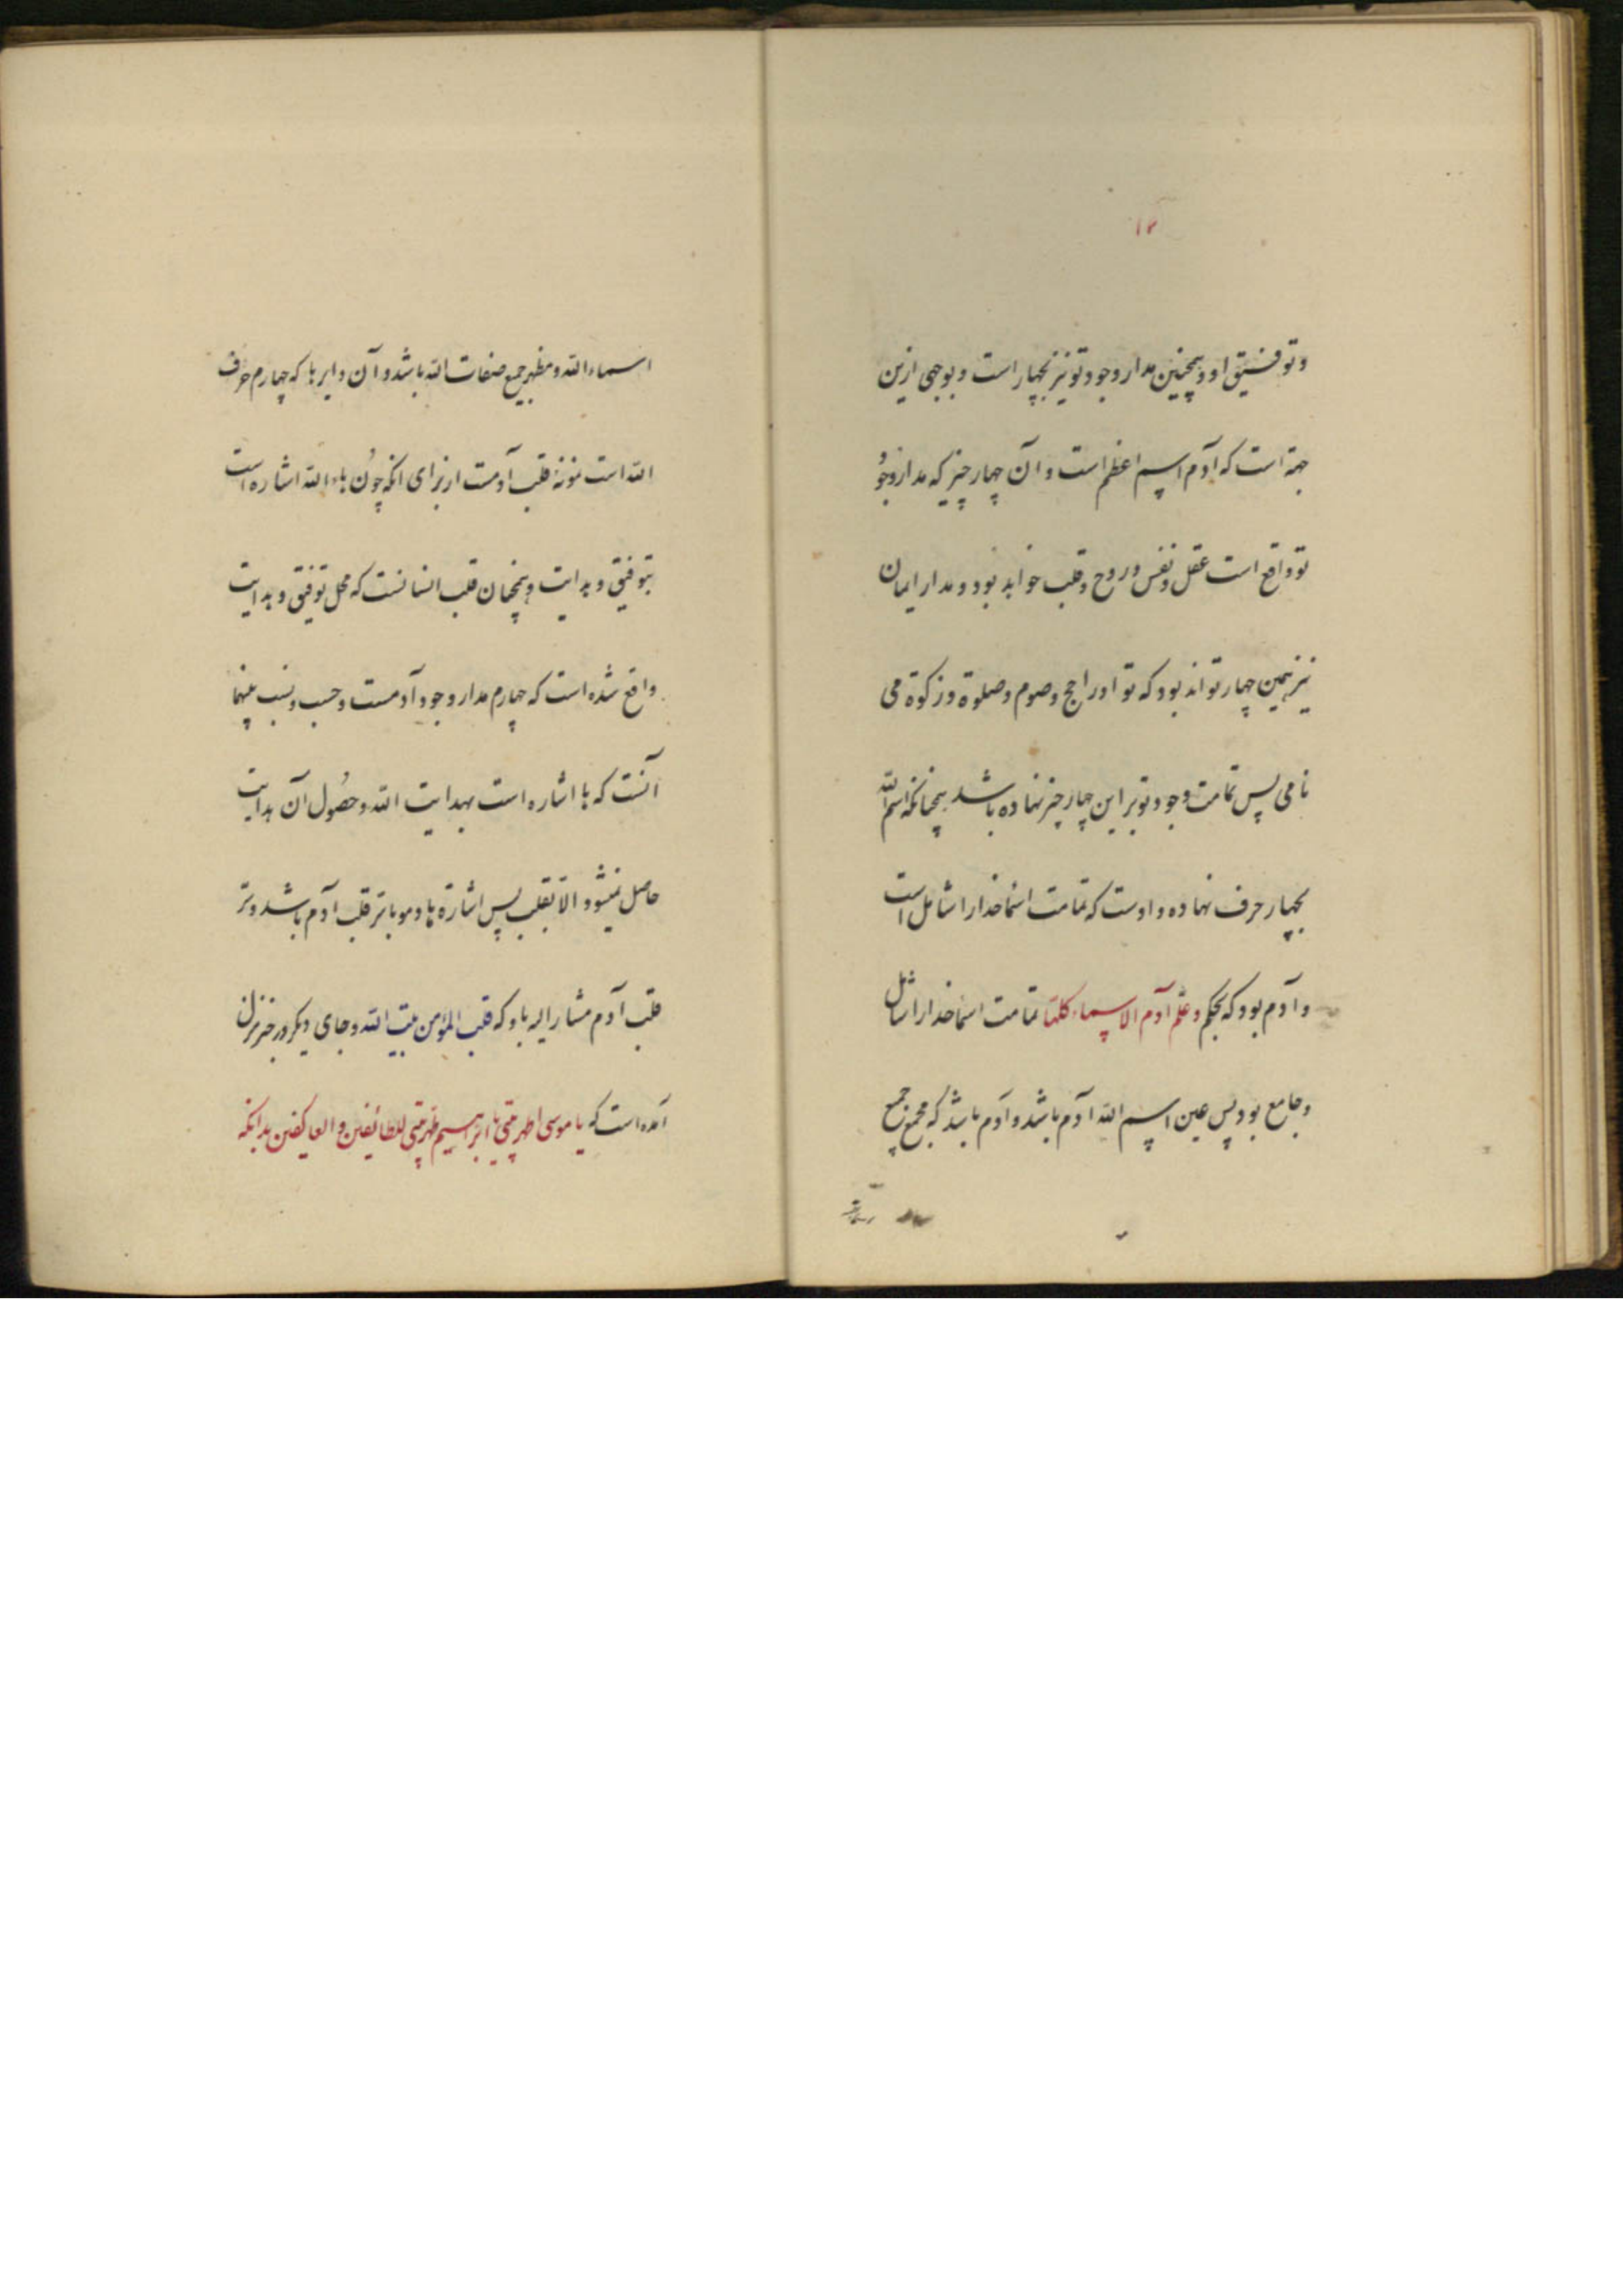 ۱۲
و توفیق او و همچنین مدار وجود تو نیز بچهار است و بوجهی ازین
جهة است که آدم اسم اعظم است و آن چهار چیز که مدار وجود
تو واقع است عقل و نفس و روح و قلب خواهد بود و مدار ایمان
نیز همین چهار تواند بود که تو او را حج و صوم و صلوة و زکوة می
نامی پس تمامت وجود تو بر این چهار چیز نهاده باشد همچنانکه اسم الله
بچهار حرف نهاده و اوست که تمامت اسما خدا را شامل است
و آدم بود که بحکم و علم آدم الاسماء کلها تمامت اسما خدا را شامل
و جامع بود پس عین اسم الله آدم باشد و آدم باشد که مجمع جمیع
اسماء الله و مظهر جمیع صفات الله باشد و آن دایر ها که چهارم حرف
الله است نمونۀ قلب آدمست از برای انکه چون هاء الله اشاره است
بتوفیق و هدایت و همچنان قلب انسانست که محل توفیق و هدایت
واقع شده است که چهارم مدار وجود آدمست و حسب و نسب بینهما
آنست که ها اشاره است بهدایت الله و حصول آن هدایت
حاصل نمیشود الا بقلب پس اشارة ها و مو با سر قلب آدم باشد و سر
قلب آدم مشار الیه باو که قلب المؤمن بیت الله و جای دیگر در خبر
آمده است که یا موسی اطهر بیتی یا ابراهیم طهر بیتی للطائفین و العاکفین بدانکه